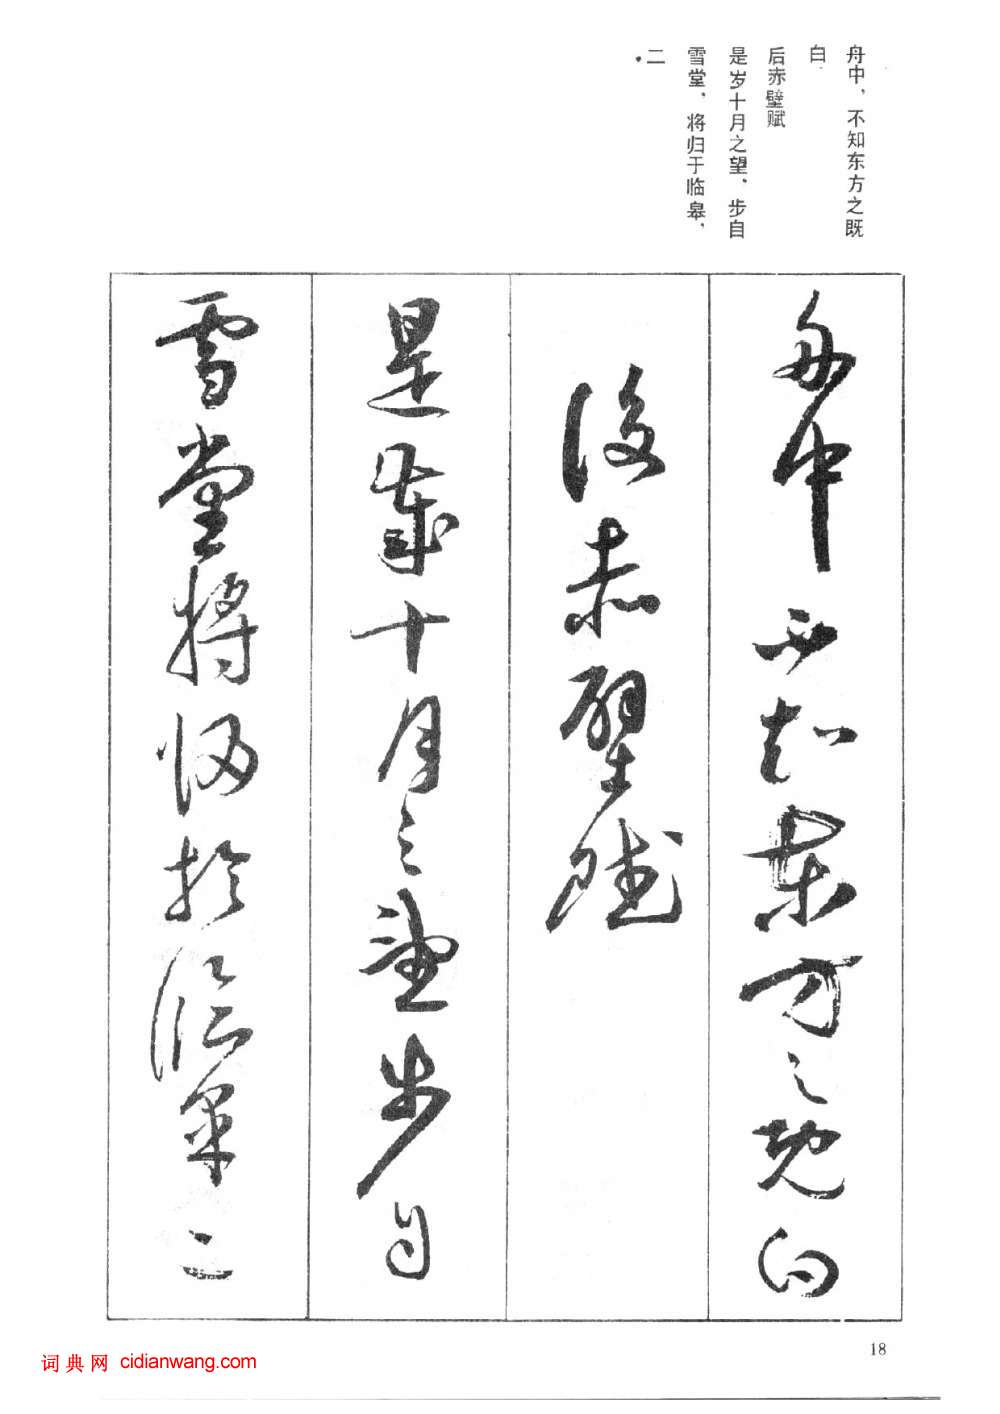 舟中，不知东方之既
白.
后赤壁赋
是岁十月之望、步自
雪堂，将归于临皋，
二
舟中不知東方之既白
後赤壁賦
是歲十月之望步自
雪堂將歸於臨皋二
18
词典网 cidianwang.com